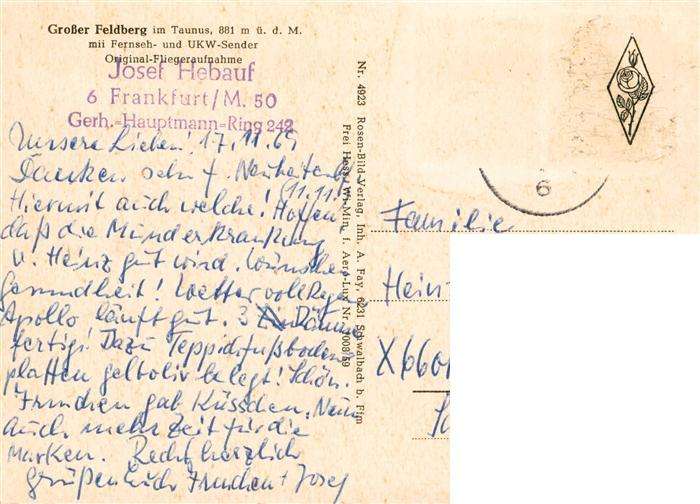 Großer Feldberg im Taunus, 881 m ü. d. M.
mit Fernseh- und UKW-Sender
Original-Fliegeraufnahme
Josef Hebauf
6 Frankfurt/M. 50
Gerh.=Hauptmann=Ring 242
Unsere Lieben! 17.11.69
Danken sehr f. Neuheiten
(11.11.)
Hiermit auch welche! Hoffen,
daß die Münderkrankung
v. Heinz gut wird. Wünschen
Gesundheit! Wetter voll Regen
Apollo läuft gut. 3
fertig! Dazu Teppichfußboden
platten gelboliv belegt! Schön.
Frauchen gab Küsschen. Nun
auch mehr Zeit für die
Marken. Recht herzlich
grüßen Euch Frauchen + Josef
Nr. 4923 Rosen-Bild-Verlag, Inh. A. Fay, 6231 Schwalbach b. Ffm
Frei Hess. Wi. Min. f. Aero-Lux Nr. 1008/59
6
Familie
Hein
X660